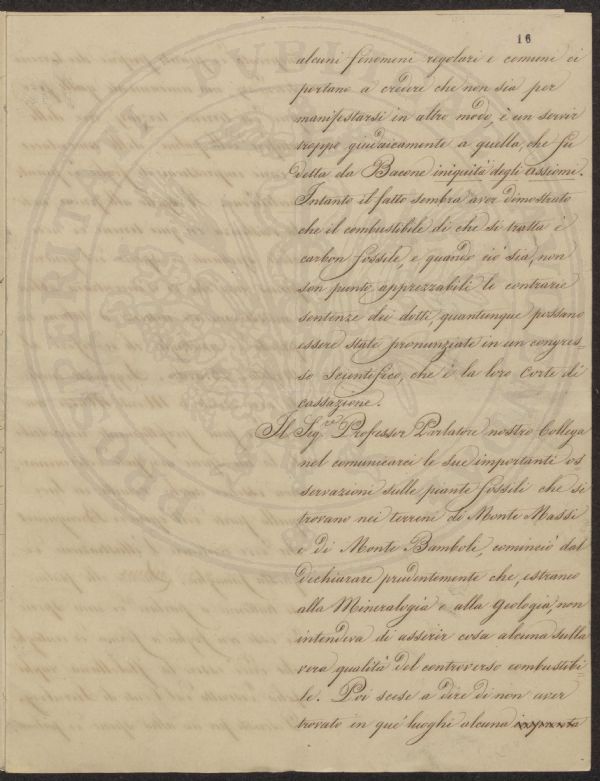 16
alcuni fenomeni regolari e comuni ci
portano a credere che non sia per
manifestarsi in altro modo, è un servir
troppo giudaicamente a quella, che fu
detta da Bacone iniquità degli assiomi.
Intanto il fatto sembra aver dimostrato
che il combustibile di che si tratta è
carbon fossile, e quando ciò sia, non
son punto apprezzabili le contrarie
sentenze dei dotti, quantunque possano
essere state pronunziate in un congres=
so Scientifico, che è la loro Corte di
cassazione.
Il Sig.re Professor Parlatore nostro Collega
nel comunicarci le sue importanti os
servazioni sulle piante fossili che si
trovano nei terreni di Monte Massi
e di Monte Bamboli, cominciò dal
dichiarare prudentemente che, estraneo
alla Mineralogia e alla Geologia, non
intendeva di asserir cosa alcuna sulla
vera qualità del controverso combustibi=
le. Poi scese a dire di non aver
trovato in que' luoghi alcuna